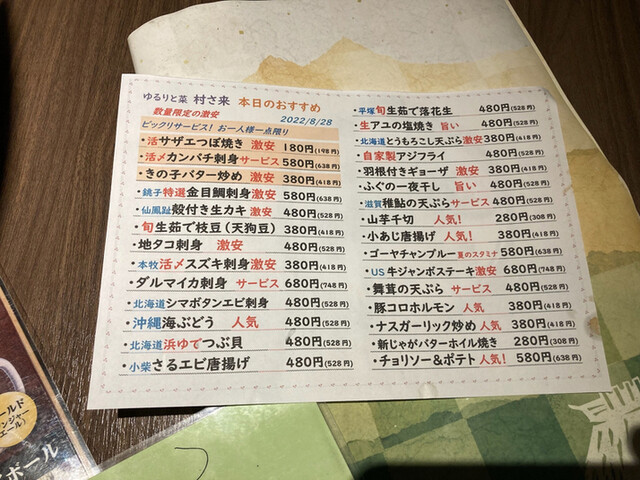 ゆるりと菜 村さ来 本日のおすすめ
数量限定の激安 2022/8/28
ビックリサービス! お一人様一点限り
・活サザエつぼ焼き 激安 180円(198円)
・活〆カンパチ刺身サービス 580円(638円)
・きの子バター炒め 激安 380円(418円)
・銚子特選金目鯛刺身激安 580円(638円)
・仙鳳趾殻付き生カキ 激安 480円(528円)
・旬生茹で枝豆(天狗豆) 380円(418円)
・地タコ刺身 激安 480円(528円)
・本牧活〆スズキ刺身激安 380円(418円)
・ダルマイカ刺身 サービス 680円(748円)
・北海道シマボタンエビ刺身 480円(528円)
・沖縄海ぶどう 人気 480円(528円)
・北海道浜ゆでつぶ貝 480円(528円)
・小柴さるエビ唐揚げ 480円(528円)
・平塚旬生茹で落花生 480円(528円)
・生アユの塩焼き 旨い 480円(528円)
・北海道とうもろこし天ぷら激安 380円(418円)
・自家製アジフライ 480円(528円)
・羽根付きギョーザ 激安 380円(418円)
・ふぐの一夜干し 旨い 480円(528円)
・滋賀稚鮎の天ぷらサービス 480円(528円)
・山芋千切 人気! 280円(308円)
・小あじ唐揚げ 人気! 380円(418円)
・ゴーヤチャンプルー夏のスタミナ 580円(638円)
・US牛ジャンボステーキ激安 680円(748円)
・舞茸の天ぷら サービス 480円(528円)
・豚コロホルモン 人気 380円(418円)
・ナスガーリック炒め 人気 380円(418円)
・新じゃがバターホイル焼き 280円(308円)
・チョリソー&ポテト 人気! 580円(638円)
ールド
ジンジャー
エール)
ボール